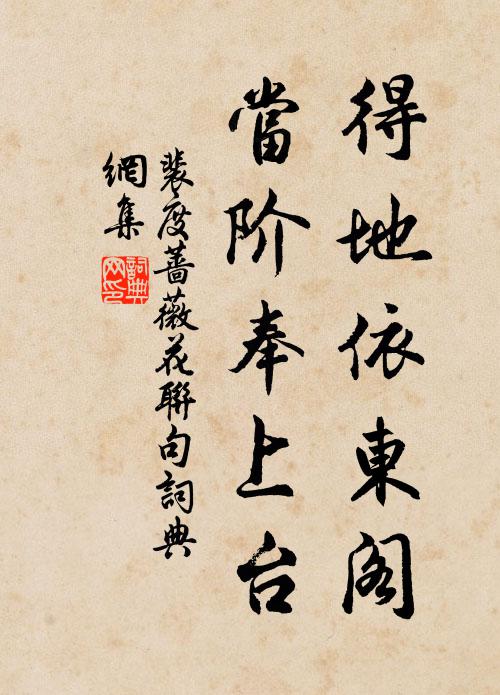 得地依東阁
當阶奉上台
裴度蔷薇花聯句詞典
網集
詞典
网印